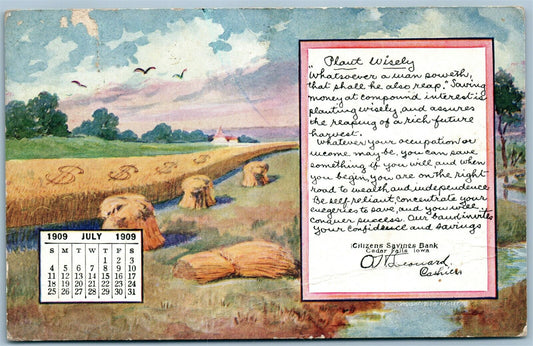 Plant Wisely
"Whatsoever a man soweth,
that shall he also reap." Saving
money at compound interest is
planting wisely and assures
the reaping of a rich future
harvest.
Whatever your occupation or
income may be, you can save
something if you will and when
you begin, you are on the right
road to wealth and independence.
Be self reliant, concentrate your
energies to save, and you will
conquer success. Our bank invites
your confidence and savings
Citizens Savings Bank
Cedar Falls Iowa
Leonard
Cashier
1909 JULY 1909
S M T W T F S
1 2 3
4 5 6 7 8 9 10
11 12 13 14 15 16 17
18 19 20 21 22 23 24
25 26 27 28 29 30 31